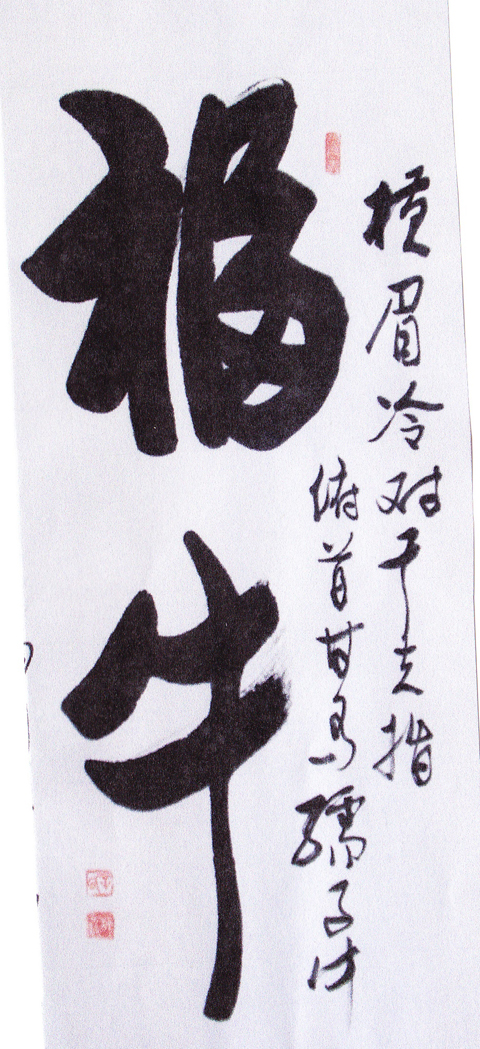 横眉冷对千夫指
俯首甘为孺子牛
福牛